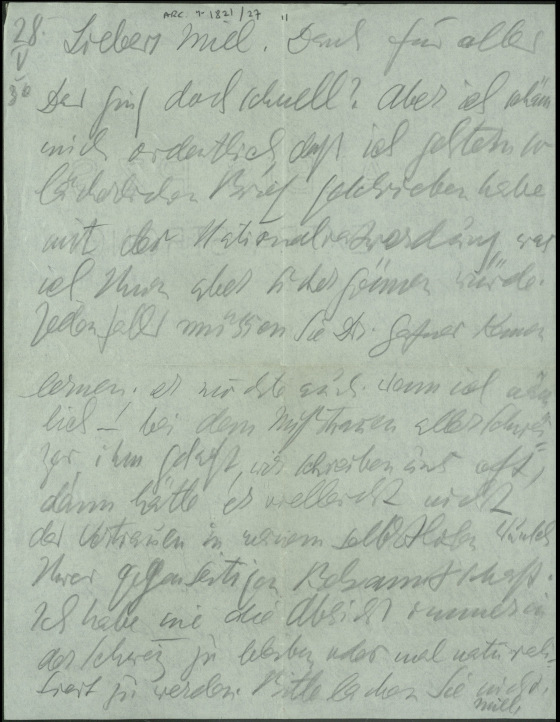 ARC. 7-1821/27 "
28.
V
30
Liebes Emil. Dank für alles
Das ging doch schnell? Aber ich schäm
mich ordentlich, daß ich gestern so
Brief geschrieben habe
mit der was
ich Ihnen aber sicher gönnen würde.
Jedenfalls müssen Sie Dr. kennen
lernen. er möchte auch. Wenn ich näm
lich – bei dem Mißtrauen aller Schwei=
zer ihm gesagt, wir schreiben uns oft,
dann hätte er vielleicht nicht
das Vertrauen in meinem selbstlosen Wunsch
Ihrer gegenseitigen Bekanntschaft.
Ich habe nie die Absicht immer in
der Schweiz zu bleiben oder mal naturali-
siert zu werden. Bitte lachen Sie nicht.